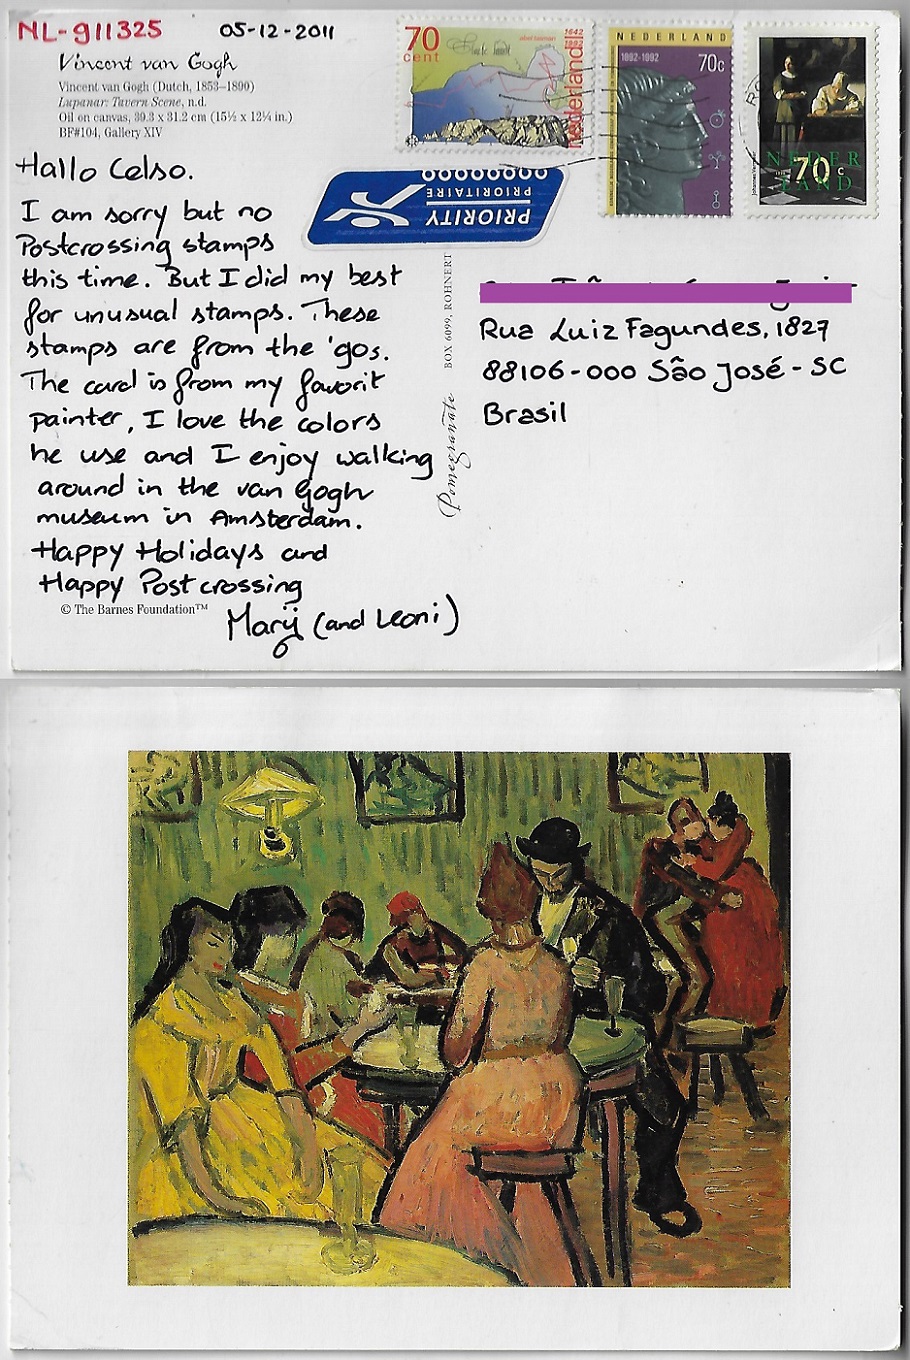 NL-911325
05-12-2011
Vincent van Gogh
Vincent van Gogh (Dutch, 1853–1890)
Lupanar: Tavern Scene, n.d.
Oil on canvas, 39.3 x 31.2 cm (15½ x 12¼ in.)
BF#104, Gallery XIV
70
cent
1642
1992
Nederland
NEDERLAND
1892-1992
70c
NEDER
LAND
70c
Hallo Celso.
I am sorry but no
Postcrossing stamps
this time. But I did my best
for unusual stamps. These
stamps are from the '90s.
The card is from my favorit
painter, I love the colors
he use and I enjoy walking
around in the van Gogh
museum in Amsterdam.
Happy Holidays and
Happy Postcrossing
Marij (and Leoni)
© The Barnes Foundation™
PRIORITY
PRIORITAIRE
BOX 6099, ROHNERT
Pomegranate
Rua Luiz Fagundes, 1827
88106-000 São José - SC
Brasil